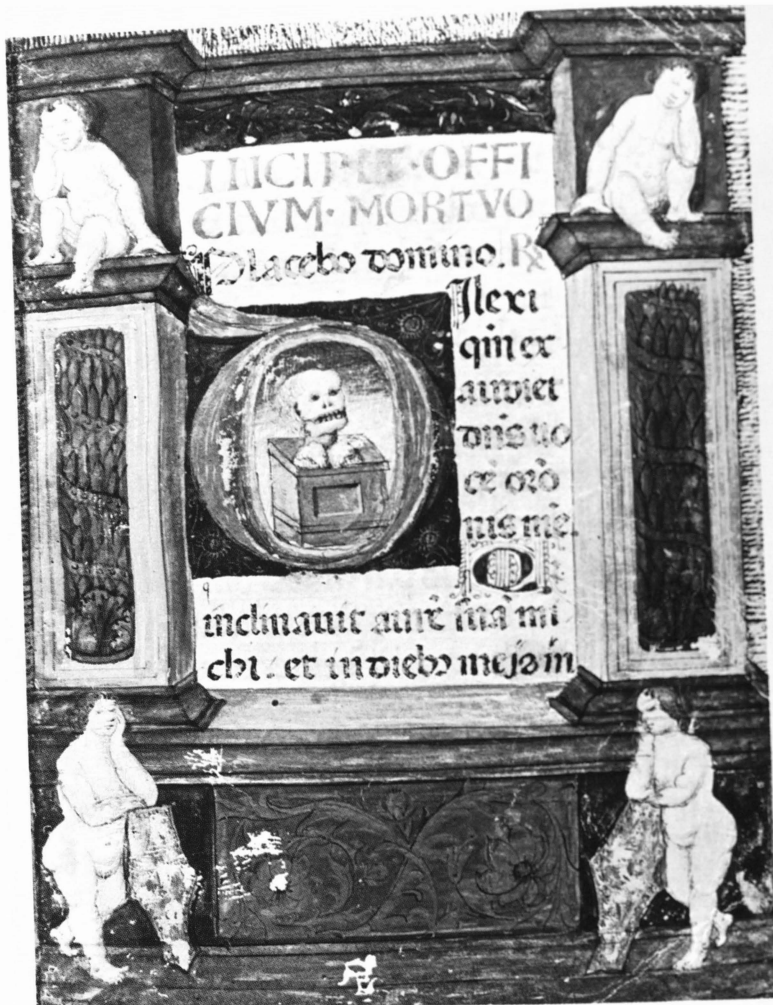 INCIPIT·OFFI
CIVM·MORTVO
Placebo domino. R
Dilexi
qm̄ ex
audiet
dn̄s uo
cē orō
nis mē.
Q
inclinauit aurē suā mi
chi. et in diebꝫ meis in